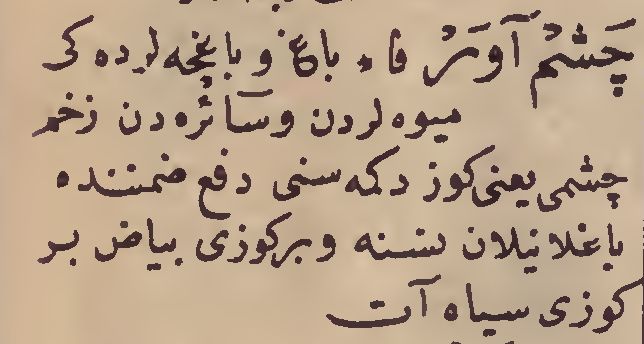 چَشْمْ آوِيزْ فا، باغ و باغچه لرده كى
ميوه لردن و سَائره دن زخم
چشمى يعنى كوز دكمه سنى دفع ضمننده
باغلانيلان نسنه و بر كوزى بياض بر
كوزى سياه آت